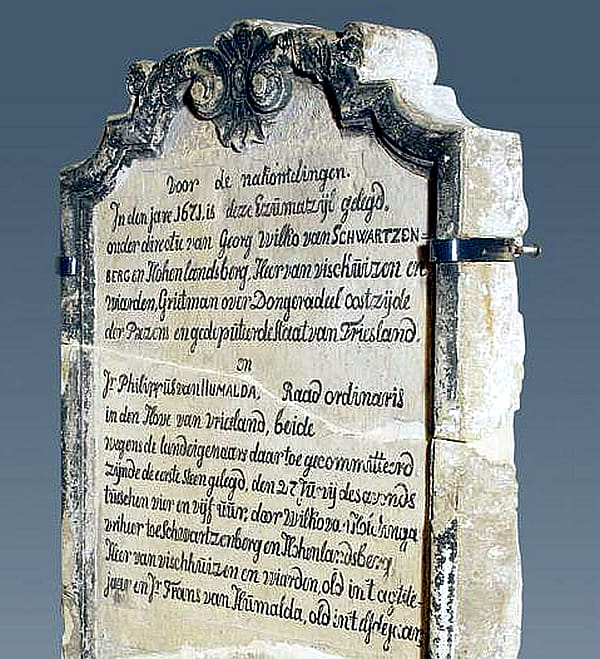 Voor de nakomelingen.
In den jare 1671 is deze Ezumazijl gelegd,
onder directie van Georg Wilko van SCHWARTZEN=
BERG en Hohenlandsberg, Heer van visch̃uizen en
wiarden, Grietman over Dongeradeel Oostzijde
der Paezens en gedeputeerde Staat van Friesland.
en
Jr. PHILIPPUS van HUMALDA, Raad ordinaris
in den Hove van vriesland, beide
wegens de landeigenaars daar toe gecommitteerd
zijnde de eerste steen gelegd, den 27 Junij des avonds
tusschen vier en vijf uur, door Wilko van
vrijheer toe Schwartzenberg en Hohenlandsberg,
Heer van vischhuizen en wiarden, old in 't agtste-
jaar en Jr. Frans van Humalda, old in 't elfde jaar